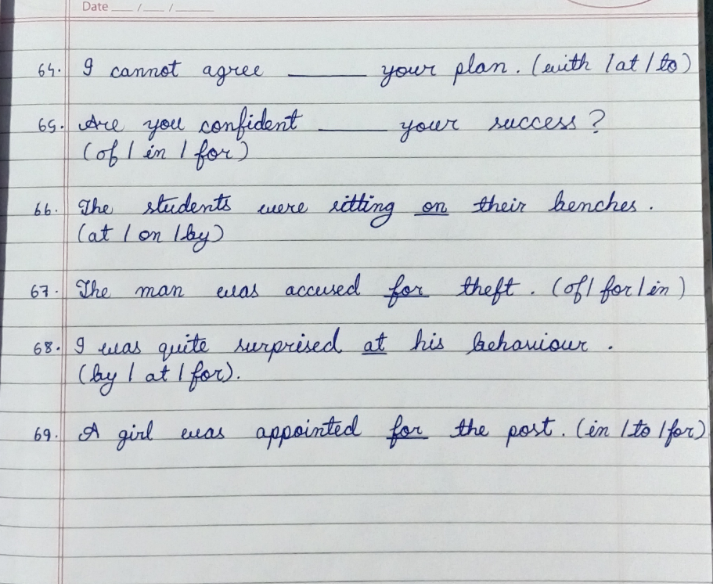 Date ___ / ___ / ______
64. I cannot agree ______ your plan. (with / at / to)
65. Are you confident ______ your success?
(of / in / for)
66. The students were sitting on their benches.
(at / on / by)
67. The man was accused for theft. (of / for / in)
68. I was quite surprised at his behaviour.
(by / at / for).
69. A girl was appointed for the post. (in / to / for)